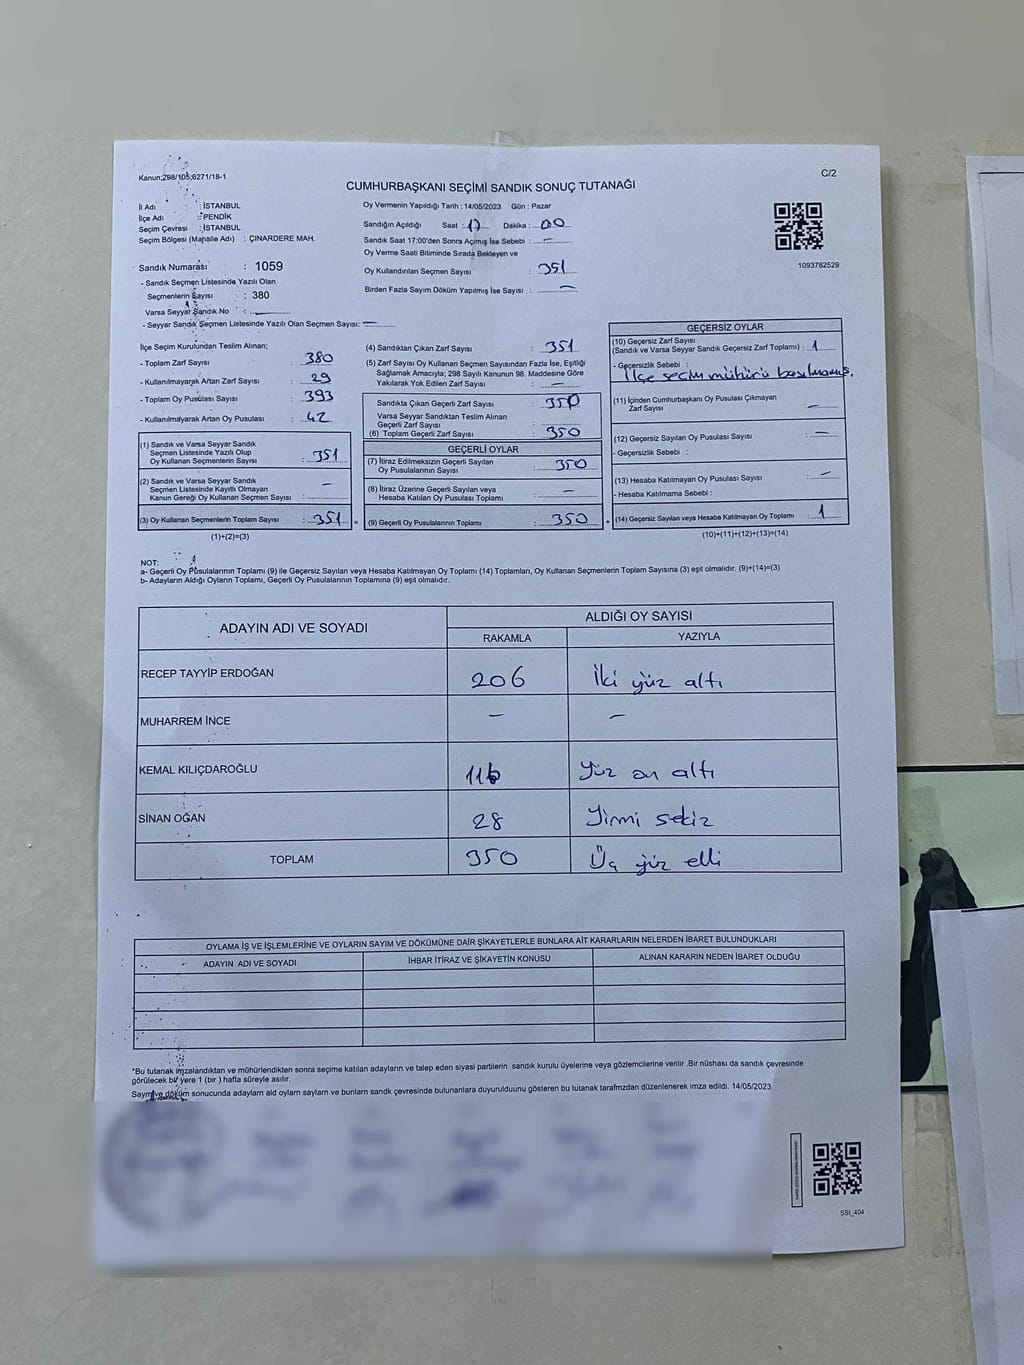 Kanun;298/105;6271/18-1
C/2
CUMHURBAŞKANI SEÇİMİ SANDIK SONUÇ TUTANAĞI
İl Adı : İSTANBUL
İlçe Adı : PENDİK
Seçim Çevresi : İSTANBUL
Seçim Bölgesi (Mahalle Adı) : ÇINARDERE MAH.
Sandık Numarası : 1059
- Sandık Seçmen Listesinde Yazılı Olan
Seçmenlerin Sayısı : 380
Varsa Seyyar Sandık No
- Seyyar Sandık Seçmen Listesinde Yazılı Olan Seçmen Sayısı: —
Oy Vermenin Yapıldığı Tarih : 14/05/2023 Gün : Pazar
Sandığın Açıldığı Saat : 17 Dakika : 00
Sandık Saat 17:00'den Sonra Açımış İse Sebebi : —
Oy Verme Saati Bitiminde Sırada Bekleyen ve
Oy Kullandırılan Seçmen Sayısı : 351
Birden Fazla Sayım Döküm Yapılmış İse Sayısı : —
1093782529
İlçe Seçim Kurulundan Teslim Alınan;
- Toplam Zarf Sayısı : 380
- Kullanılmayarak Artan Zarf Sayısı : 29
- Toplam Oy Pusulası Sayısı : 393
- Kullanılmayarak Artan Oy Pusulası : 42
(1) Sandık ve Varsa Seyyar Sandık
Seçmen Listesinde Yazılı Olup
Oy Kullanan Seçmenlerin Sayısı : 351
(2) Sandık ve Varsa Seyyar Sandık
Seçmen Listesinde Kayıtlı Olmayan
Kanun Gereği Oy Kullanan Seçmen Sayısı : —
(3) Oy Kullanan Seçmenlerin Toplam Sayısı : 351 =
(1)+(2)=(3)
(4) Sandıktan Çıkan Zarf Sayısı : 351
(5) Zarf Sayısı Oy Kullanan Seçmen Sayısından Fazla İse, Eşitliği
Sağlamak Amacıyla; 298 Sayılı Kanunun 98. Maddesine Göre
Yakılarak Yok Edilen Zarf Sayısı : —
Sandıkta Çıkan Geçerli Zarf Sayısı : 350
Varsa Seyyar Sandıktan Teslim Alınan
Geçerli Zarf Sayısı :
(6) Toplam Geçerli Zarf Sayısı : 350
GEÇERLİ OYLAR
(7) İtiraz Edilmeksizin Geçerli Sayılan
Oy Pusulalarının Sayısı : 350
(8) İtiraz Üzerine Geçerli Sayılan veya
Hesaba Katılan Oy Pusulası Toplamı : —
(9) Geçerli Oy Pusulalarının Toplamı : 350 +
GEÇERSİZ OYLAR
(10) Geçersiz Zarf Sayısı
(Sandık ve Varsa Seyyar Sandık Geçersiz Zarf Toplamı) : 1
- Geçersizlik Sebebi :
İlçe seçim mühürü basılmamış.
(11) İçinden Cumhurbaşkanı Oy Pusulası Çıkmayan
Zarf Sayısı : —
(12) Geçersiz Sayılan Oy Pusulası Sayısı : —
- Geçersizlik Sebebi :
(13) Hesaba Katılmayan Oy Pusulası Sayısı : —
- Hesaba Katılmama Sebebi :
(14) Geçersiz Sayılan veya Hesaba Katılmayan Oy Toplamı : 1
(10)+(11)+(12)+(13)=(14)
NOT:
a- Geçerli Oy Pusulalarının Toplamı (9) ile Geçersiz Sayılan veya Hesaba Katılmayan Oy Toplamı (14) Toplamları, Oy Kullanan Seçmenlerin Toplam Sayısına (3) eşit olmalıdır. (9)+(14)=(3)
b- Adayların Aldığı Oyların Toplamı, Geçerli Oy Pusulalarının Toplamına (9) eşit olmalıdır.
ADAYIN ADI VE SOYADI
ALDIĞI OY SAYISI
RAKAMLA YAZIYLA
RECEP TAYYİP ERDOĞAN 206 İki yüz altı
MUHARREM İNCE — —
KEMAL KILIÇDAROĞLU 116 Yüz on altı
SİNAN OĞAN 28 Yirmi sekiz
TOPLAM 350 Üç yüz elli
OYLAMA İŞ VE İŞLEMLERİNE VE OYLARIN SAYIM VE DÖKÜMÜNE DAİR ŞİKAYETLERLE BUNLARA AİT KARARLARIN NELERDEN İBARET BULUNDUKLARI
ADAYIN ADI VE SOYADI
İHBAR İTİRAZ VE ŞİKAYETİN KONUSU
ALINAN KARARIN NEDEN İBARET OLDUĞU
*Bu tutanak imzalandıktan ve mühürlendikten sonra seçime katılan adayların ve talep eden siyasi partilerin sandık kurulu üyelerine veya gözlemcilerine verilir .Bir nüshası da sandık çevresinde
görülecek bir yere 1 (bir ) hafta süreyle asılır.
Sayım ve döküm sonucunda adayların ald oyların sayların ve bunların sandk çevresinde bulunanlara duyurulduunu gösteren bu tutanak tarafmzdan düzenlenerek imza edildi. 14/05/2023
SSI_404